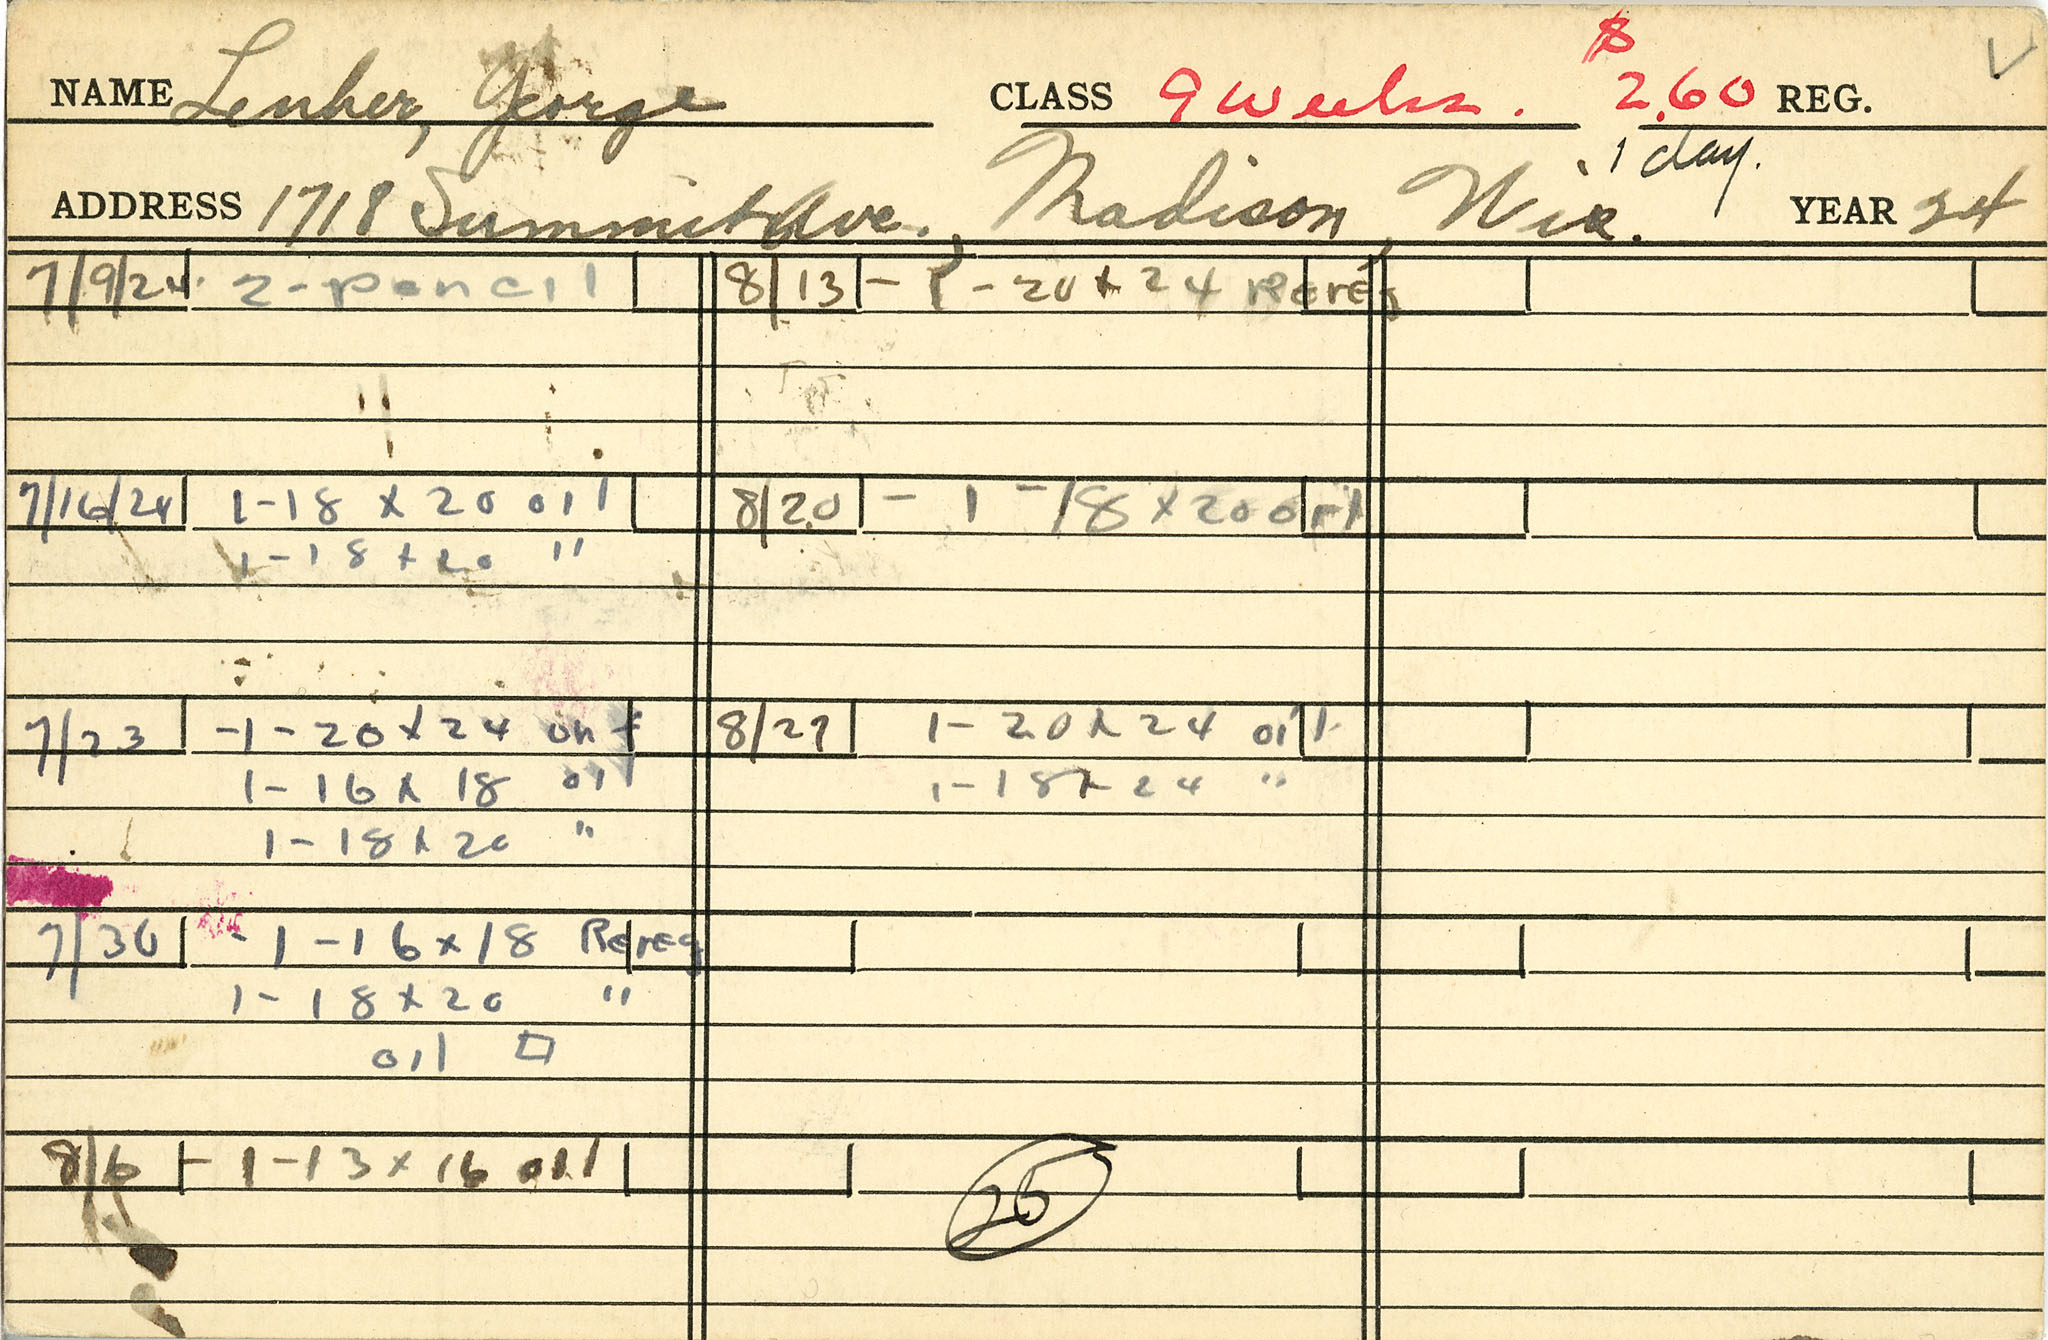 $
NAME Lenher, George CLASS 9 weeks. 2.60 REG.
1 day.
ADDRESS 1718 Summit Ave., Madison, Wis. YEAR 24
7/9/24 2-pencil
7/16/24 1-18 x 20 oil
1-18 x 20 "
7/23 -1-20 x 24
1-16 x 18 oil
1-18 x 20 "
7/30 -1-16 x 18 Rereg
1-18 x 20 "
oil
8/6 - 1-13 x 16 oil
8/13 - 1-20 x 24 Rereg
8/20 - 1-18 x 20 oil
8/27 1-20 x 24 oil
1-18 x 24 "